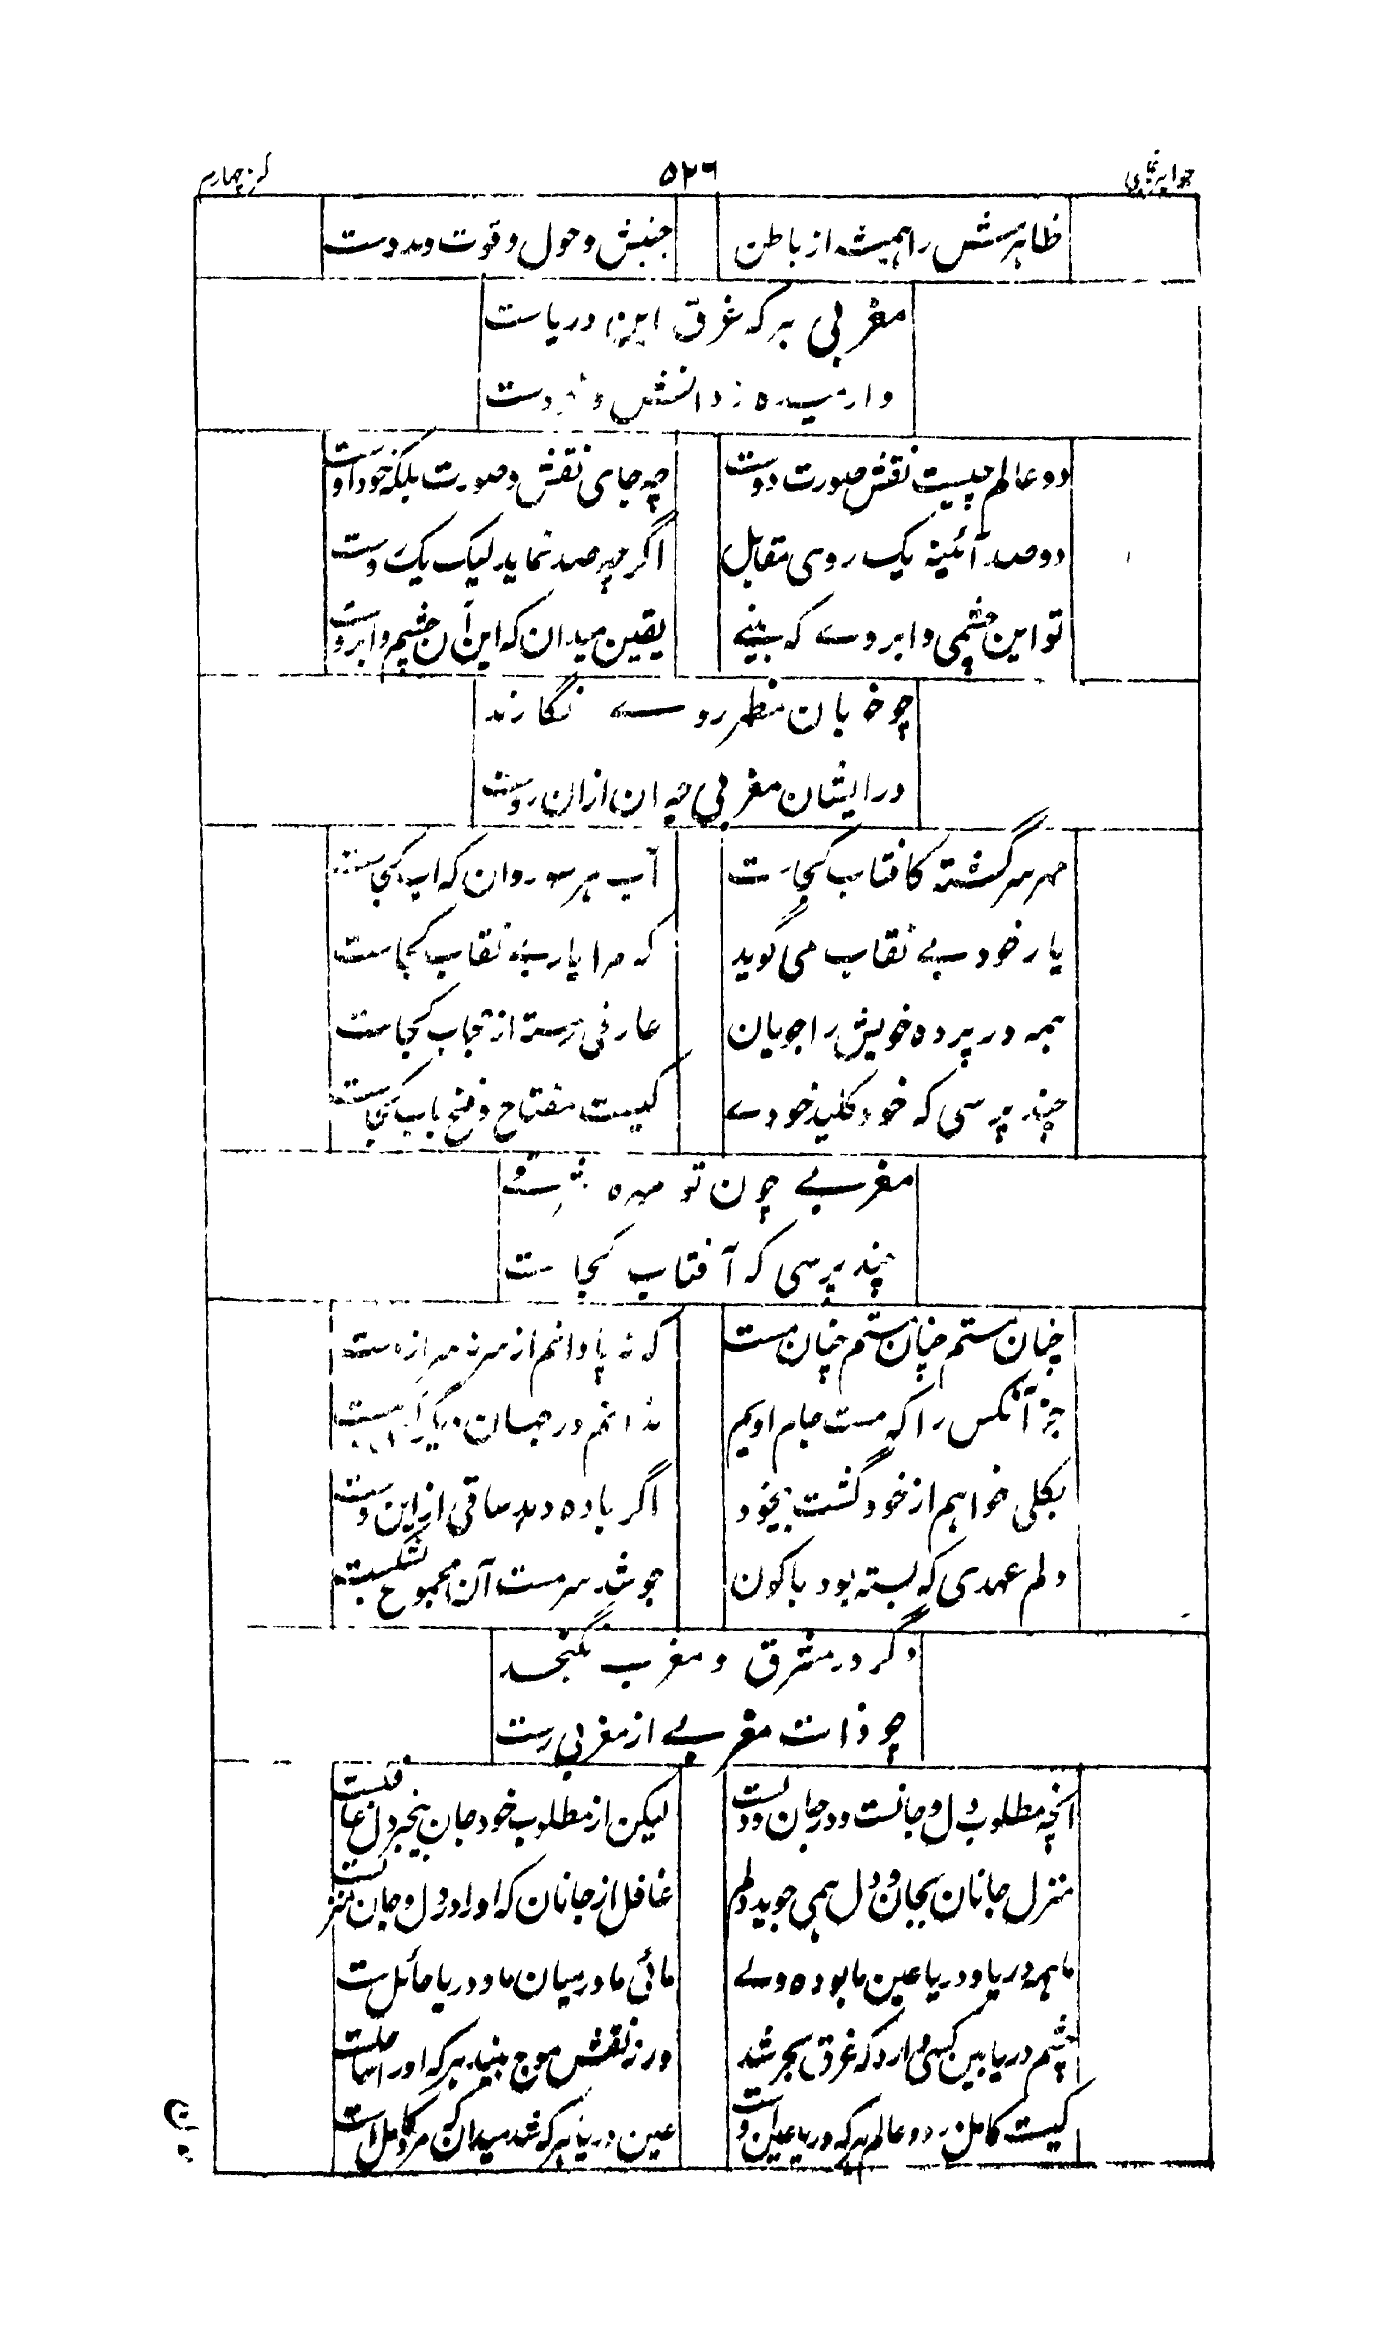 جواہر غیبی ۵۲۶ کنز چهارم
ظاہرش را ہمیشہ از باطن جنبش و حول و قوت و مدد ست
مغربی ہر کہ غرق این دریاست
وارمیدہ ز دانش و
دو عالم چیست نقش صورت دوست چہ جای نقش و صورت بلکہ خود اوست
دو صد آئینہ یک روی مقابل اگر چہ صد نماید لیک یک روست
تو این چشمی و ابروے کہ بینے یقین میدان کہ این آن چشم و ابروست
چو خوبان مظہر روے نگارند
در ایشان مغربی حیران ازان روست
مہر سرگشتہ کافتاب کجاست آب ہر سو روان کہ آب کجاست
یار خود بے نقاب می گوید کہ مرا یار بے نقاب کجاست
ہمہ در پردہ خویش را جویان عارفی رستہ از حجاب کجاست
چند پرسی کہ خود کلید خودے کیست مفتاح و فتح باب کجاست
مغربے چون تو مہرہ
چند پرسی کہ آفتاب کجاست
چنان مستم چنان مستم چنان مست کہ نہ پا دانم از سر نہ سر از دست
جز آنکس را کہ مست جام اویم ندانم در جہان دیگر
بکلی خواہم از خود گشت بیخود اگر بادہ دہد ساقی ازین دست
دلم عہدی کہ بستہ بود با کون چو شد سرمست آن مجموع بشکست
دگر در مشرق و مغرب نگنجد
چو ذات مغربے از مغربی رست
آنچہ مطلوب دل و جانست و در جان و دلست لیکن از مطلوب خود جان بیخبر دل غافلست
منزل جانان بجان و دل ہمی جوید دلم غافل از جانان کہ او را در دل و جان منزلست
ما ہمہ دریا و دریا عین ما بودہ ولے مائی ما در میان ما و دریا حائل ست
چشم دریا بین کسی دارد کہ غرق بحر شد ورنہ نقش موج بیند ہر کہ او را ساحلست
کیست کامل در دو عالم ہر کہ دریا عین اوست عین دریا ہر کہ شد میدان کہ مرد کامل است